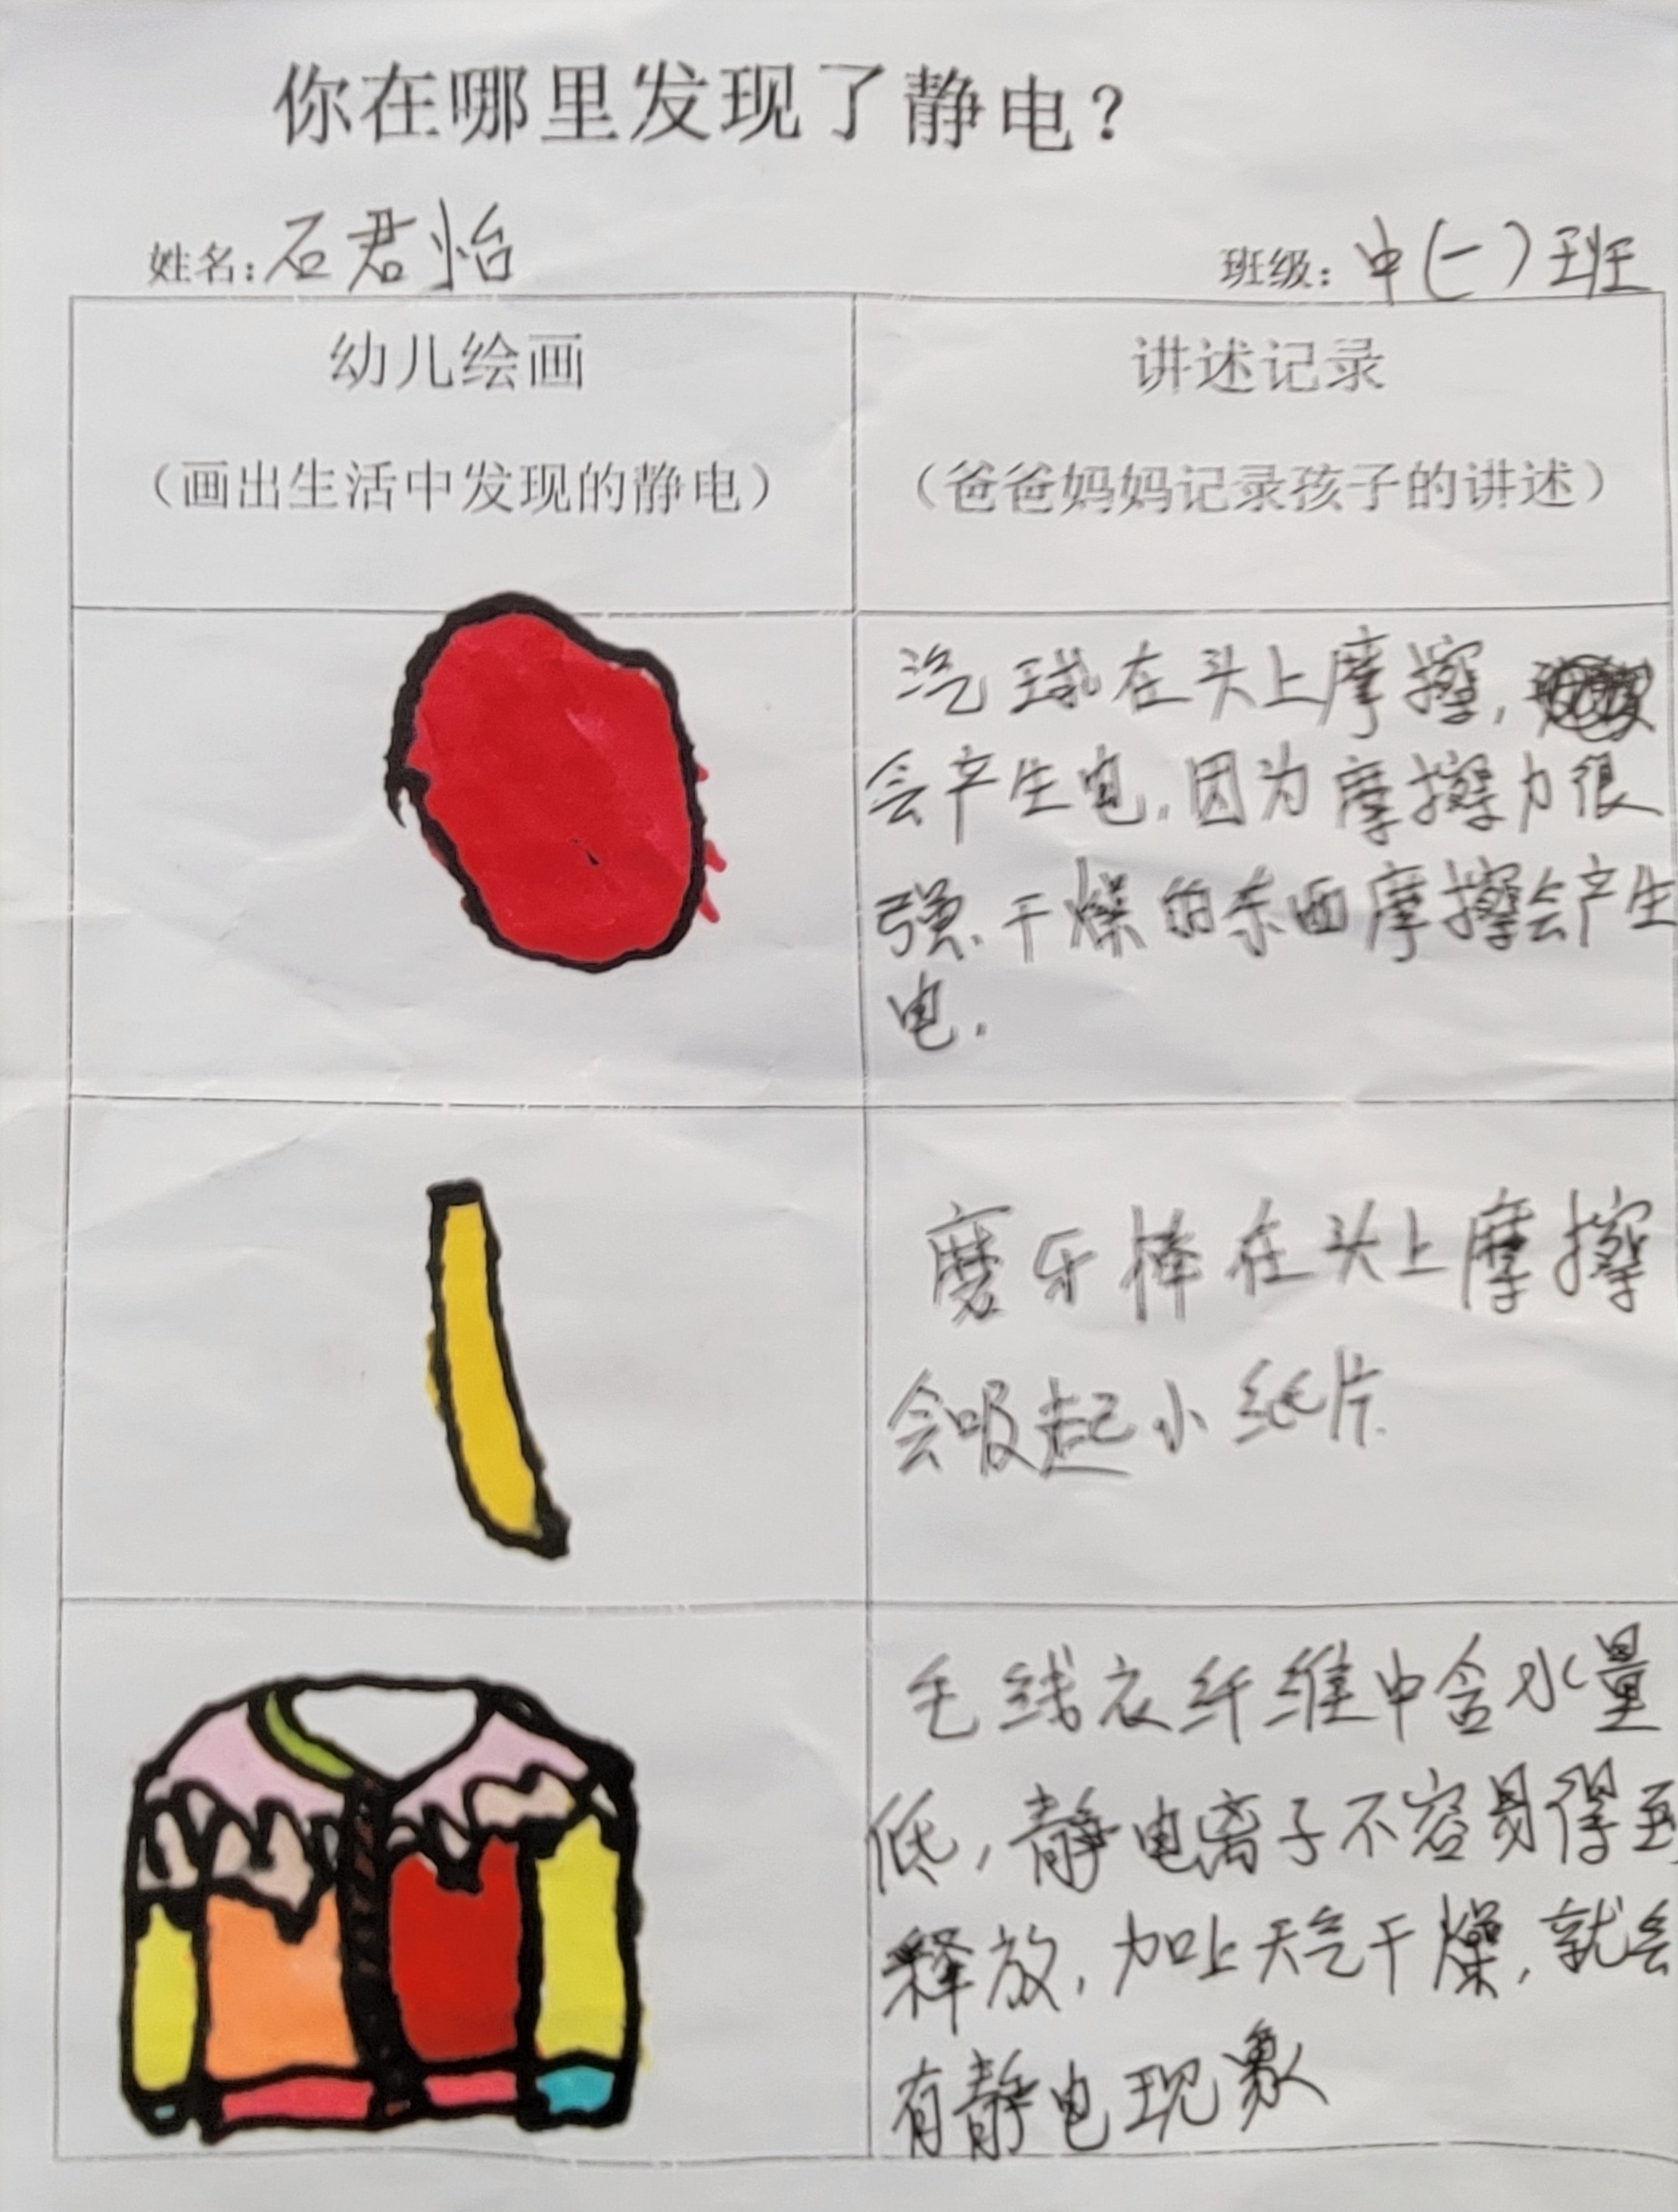 你在哪里发现了静电?
姓名:石君怡 班级:中(一)班
幼儿绘画
(画出生活中发现的静电)
讲述记录
(爸爸妈妈记录孩子的讲述)
汽球在头上摩擦,
会产生电.因为摩擦力很
强.干燥的东西摩擦会产生
电.
磨牙棒在头上摩擦
会吸起小纸片.
毛线衣纤维中含水量
低,静电离子不容易得到
释放,加上天气干燥,就会
有静电现象